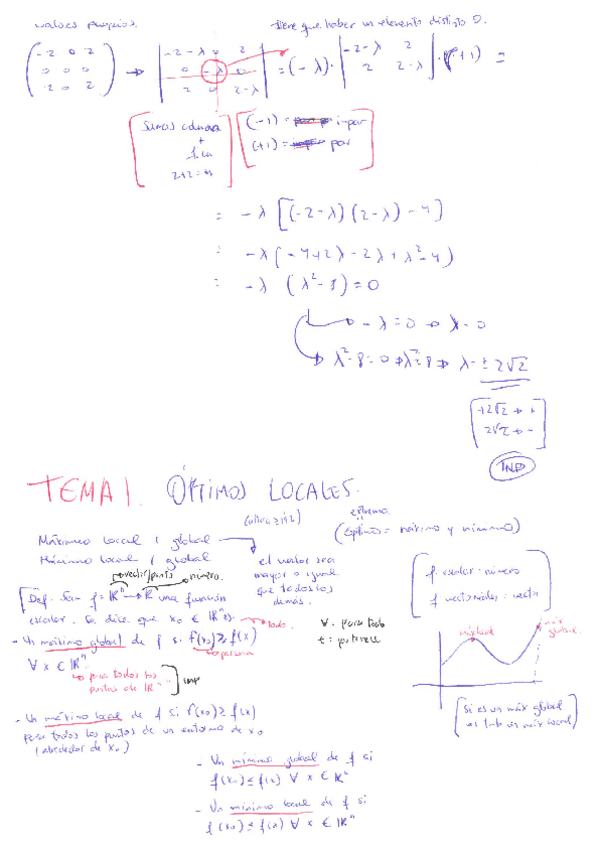 valores propios.
tiene que haber un elemento distinto 0.
(-2 0 2
0 0 0
2 0 2)
→ |-2-λ 0 2
0 -λ 0
2 0 2-λ|
= (-λ) · |-2-λ 2
2 2-λ| · (+1) =
Sumas columna
+
fila
2+2=4
(-1) = impar
(+1) = par
= -λ [(-2-λ)(2-λ) - 4]
= -λ (-4+2λ-2λ+λ²-4)
= -λ (λ²-8) = 0
-λ=0 → λ=0
λ²-8=0 → λ²=8 → λ=±2√2
+2√2 → +
2√2 → -
TEMA 1. ÓPTIMOS LOCALES.
extremo
(óptimo = máximo y mínimo)
Máximo local / global
Mínimo local / global
el valor sea
mayor o igual
que todos los
demás.
f. escalar: número
f vectoriales: vector
vector/punto
número.
Def. Sea f = ℝⁿ → ℝ una función
escalar. Se dice que x₀ ∈ ℝⁿ es:
∀. para todo
€: pertenece
- Un máximo global de f si f(x₀) ≥ f(x)
∀ x € ℝⁿ.
pertenece
para todos los
puntos de ℝⁿ
imp
máx local
máx
global
Si es un máx global
es tmb un máx local
- Un máximo local de f si f(x₀) ≥ f(x)
para todos los puntos de un entorno de x₀
(alrededor de x₀)
- Un mínimo global de f si
f(x₀) ≤ f(x) ∀ x € ℝⁿ
- Un mínimo local de f si
f(x₀) ≤ f(x) ∀ x € ℝⁿ